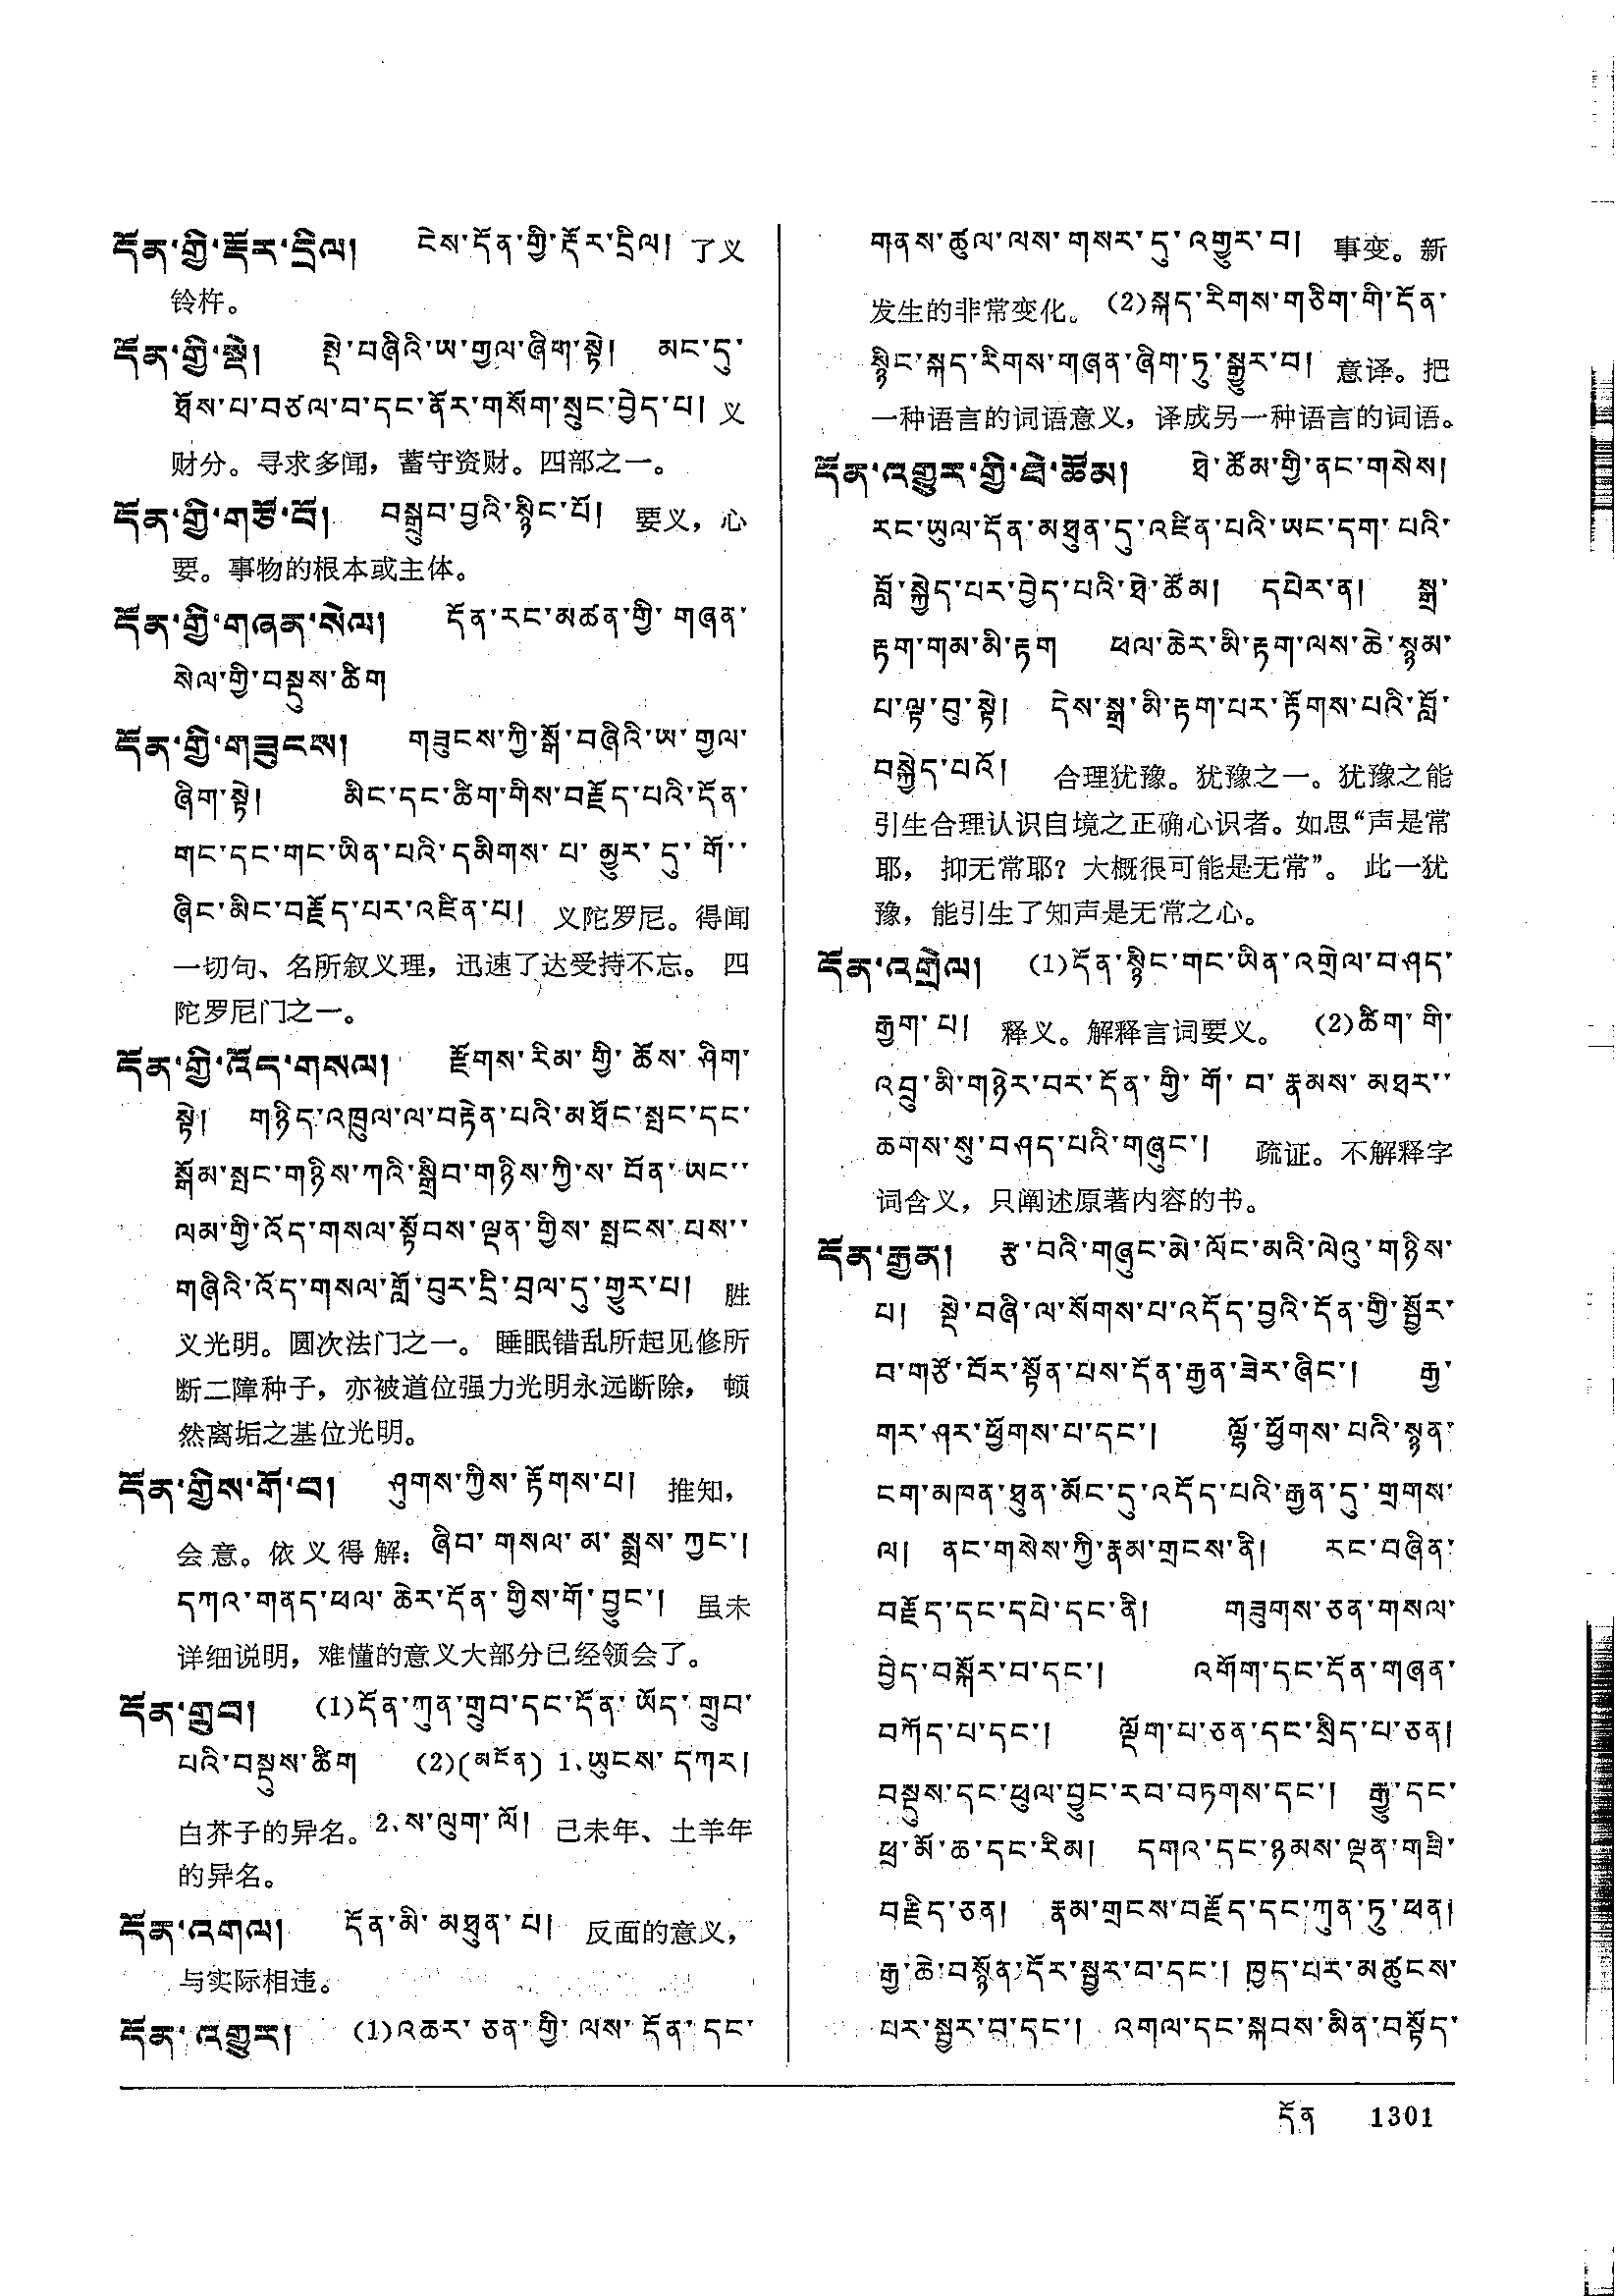 དོན་གྱི་རྡོར་དྲིལ། ངེས་དོན་གྱི་རྡོར་དྲིལ། 了义
铃杵。
དོན་གྱི་སྡེ། སྡེ་བཞིའི་ཨ་གྱལ་ཞིག་སྟེ། མང་དུ་
ཐོས་པ་བཙལ་བ་དང་ནོར་གསོག་སྲུང་བྱེད་པ། 义
财分。寻求多闻，蓄守资财。四部之一。
དོན་གྱི་གཙོ་བོ། བསྒྲུབ་བྱའི་སྙིང་པོ། 要义，心
要。事物的根本或主体。
དོན་གྱི་གཞན་སེལ། དོན་རང་མཚན་གྱི་གཞན་
སེལ་གྱི་བསྡུས་ཚིག
དོན་གྱི་གཟུངས། གཟུངས་ཀྱི་སྒོ་བཞིའི་ཨ་གྱལ་
ཞིག་སྟེ། མིང་དང་ཚིག་གིས་བརྗོད་པའི་དོན་
གང་དང་གང་ཡིན་པའི་དམིགས་པ་མྱུར་དུ་གོ་་
ཞིང་མིང་བརྗོད་པར་འཛིན་པ། 义陀罗尼。得闻
一切句、名所叙义理，迅速了达受持不忘。四
陀罗尼门之一。
དོན་གྱི་འོད་གསལ། རྫོགས་རིམ་གྱི་ཆོས་ཤིག་
སྟེ། གཉིད་འཁྲུལ་ལ་བརྟེན་པའི་མཐོང་སྤང་དང་
སྒོམ་སྤང་གཉིས་ཀའི་སྒྲིབ་གཉིས་ཀྱི་ས་བོན་ཡང་་
ལམ་གྱི་འོད་གསལ་སྟོབས་ལྡན་གྱིས་སྤངས་པས་་
གཞིའི་འོད་གསལ་གློ་བུར་དྲི་བྲལ་དུ་གྱུར་པ། 胜
义光明。圆次法门之一。睡眠错乱所起见修所
断二障种子，亦被道位强力光明永远断除，顿
然离垢之基位光明。
དོན་གྱིས་གོ་བ། ཤུགས་ཀྱིས་རྟོགས་པ། 推知，
会意。依义得解：ཞིབ་གསལ་མ་སྨྲས་ཀྱང་།
དཀའ་གནད་ཕལ་ཆེར་དོན་གྱིས་གོ་བྱུང་། 虽未
详细说明，难懂的意义大部分已经领会了。
དོན་གྲུབ། (1)དོན་ཀུན་གྲུབ་དང་དོན་ཡོད་གྲུབ་
པའི་བསྡུས་ཚིག (2)(མངོན) 1.ཡུངས་དཀར།
白芥子的异名。2.ས་ལུག་ལོ། 己未年、土羊年
的异名。
དོན་འགལ། དོན་མི་མཐུན་པ། 反面的意义，
与实际相违。
དོན་འགྱུར། (1)འཆར་ཅན་གྱི་ལས་དོན་དང་
གནས་ཚུལ་ལས་གསར་དུ་འགྱུར་བ། 事变。新
发生的非常变化。(2)སྐད་རིགས་གཅིག་གི་དོན་
སྙིང་སྐད་རིགས་གཞན་ཞིག་ཏུ་སྒྱུར་བ། 意译。把
一种语言的词语意义，译成另一种语言的词语。
དོན་འགྱུར་གྱི་ཐེ་ཚོམ། ཐེ་ཚོམ་གྱི་ནང་གསེས།
རང་ཡུལ་དོན་མཐུན་དུ་འཛིན་པའི་ཡང་དག་པའི་
བློ་སྐྱེད་པར་བྱེད་པའི་ཐེ་ཚོམ། དཔེར་ན། སྒྲ་
རྟག་གམ་མི་རྟག ཕལ་ཆེར་མི་རྟག་ལས་ཆེ་སྙམ་
པ་ལྟ་བུ་སྟེ། དེས་སྒྲ་མི་རྟག་པར་རྟོགས་པའི་བློ་
བསྐྱེད་པའོ། 合理犹豫。犹豫之一。犹豫之能
引生合理认识自境之正确心识者。如思“声是常
耶，抑无常耶？大概很可能是无常”。此一犹
豫，能引生了知声是无常之心。
དོན་འགྲེལ། (1)དོན་སྙིང་གང་ཡིན་འགྲེལ་བཤད་
རྒྱག་པ། 释义。解释言词要义。(2)ཚིག་གི་
འབྲུ་མི་གཉེར་བར་དོན་གྱི་གོ་བ་རྣམས་མཐར་་
ཆགས་སུ་བཤད་པའི་གཞུང་། 疏证。不解释字
词含义，只阐述原著内容的书。
དོན་རྒྱན། རྩ་བའི་གཞུང་མེ་ལོང་མའི་ལེའུ་གཉིས་
པ། སྡེ་བཞི་ལ་སོགས་པ་འདོད་བྱའི་དོན་གྱི་སྦྱོར་
བ་གཙོ་བོར་སྟོན་པས་དོན་རྒྱན་ཟེར་ཞིང་། རྒྱ་
གར་ཤར་ཕྱོགས་པ་དང་། ལྷོ་ཕྱོགས་པའི་སྙན་
ངག་མཁན་ཐུན་མོང་དུ་འདོད་པའི་རྒྱན་དུ་གྲགས་
ལ། ནང་གསེས་ཀྱི་རྣམ་གྲངས་ནི། རང་བཞིན་
བརྗོད་དང་དཔེ་དང་ནི། གཟུགས་ཅན་གསལ་
བྱེད་བསྐོར་བ་དང་། འགོག་དང་དོན་གཞན་
བཀོད་པ་དང་། ལྡོག་པ་ཅན་དང་སྲིད་པ་ཅན།
བསྡུས་དང་ཕུལ་བྱུང་རབ་བཏགས་དང་། རྒྱུ་དང་
ཕྲ་མོ་ཆ་དང་རིམ། དགའ་དང་ཉམས་ལྡན་གཟི་
བརྗིད་ཅན། རྣམ་གྲངས་བརྗོད་དང་ཀུན་ཏུ་ཕན།
རྒྱ་ཆེ་བསྙོན་དོར་སྦྱར་བ་དང་། ཁྱད་པར་མཚུངས་
པར་སྦྱར་བ་དང་། འགལ་དང་སྐབས་མིན་བསྟོད་
དོན 1301